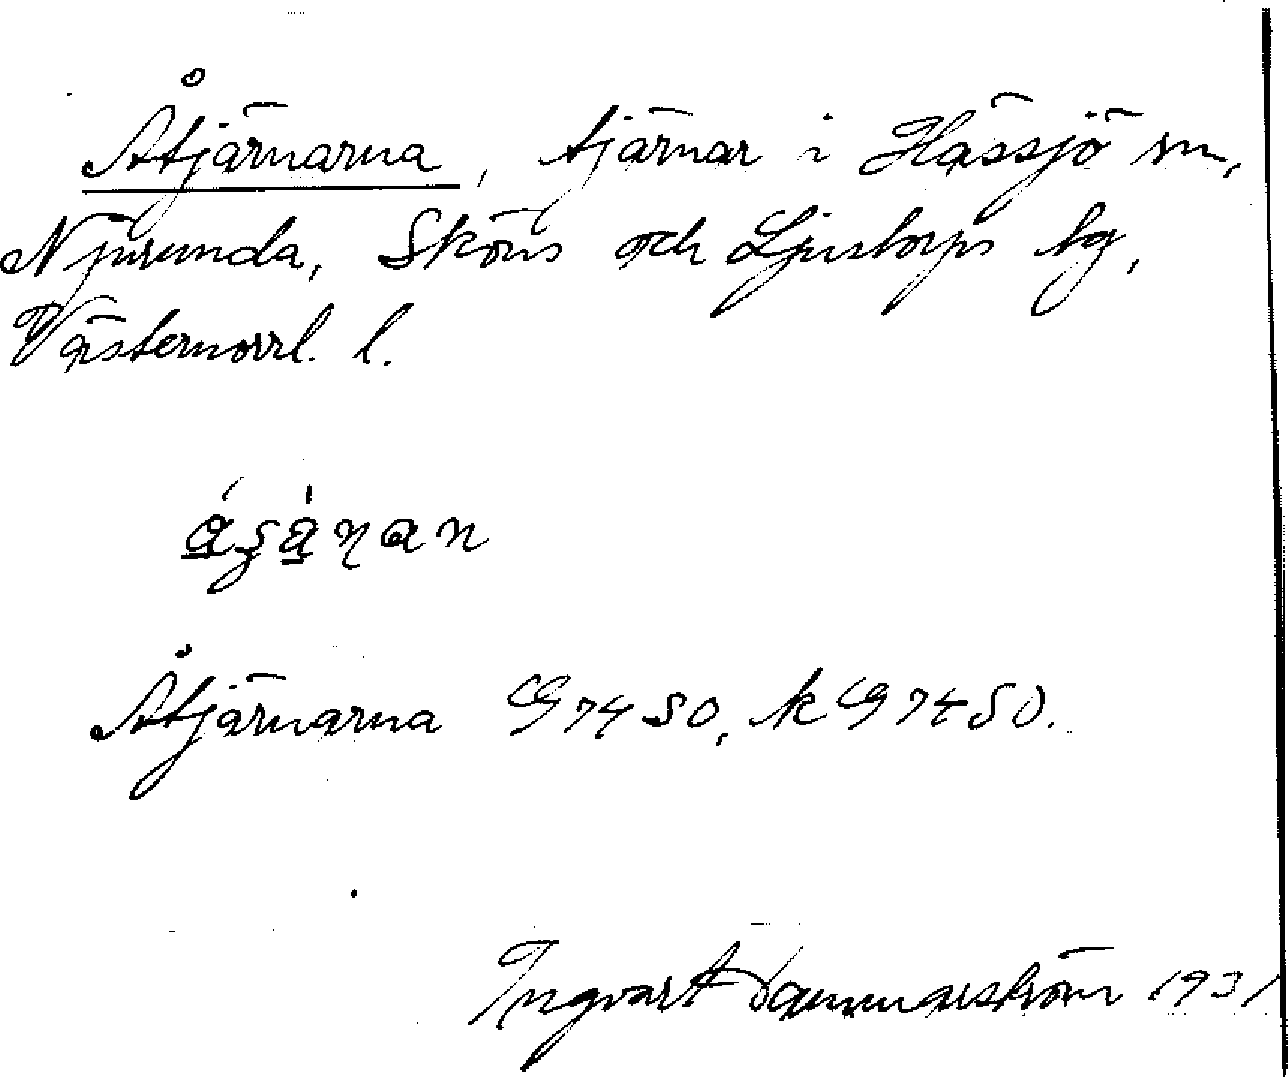 Åtjärnarna, tjärnar i Hässjö sn,
Njurunda, Sköns och Ljustorps tg,
Västernorrl. l.
Åtjärnarna G 7450, k G 7450.
Ingvart 1931